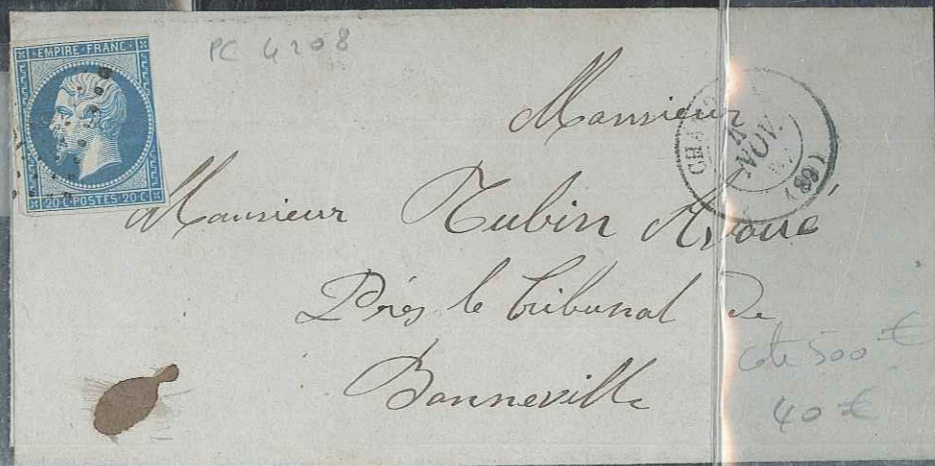 EMPIRE FRANC
20 C POSTES 20 C
PC 4208
4
NOV.
(89)
Monsieur
Monsieur Rubin Avoué
Près le tribunal de
Bonneville
cote 500 €
40 €